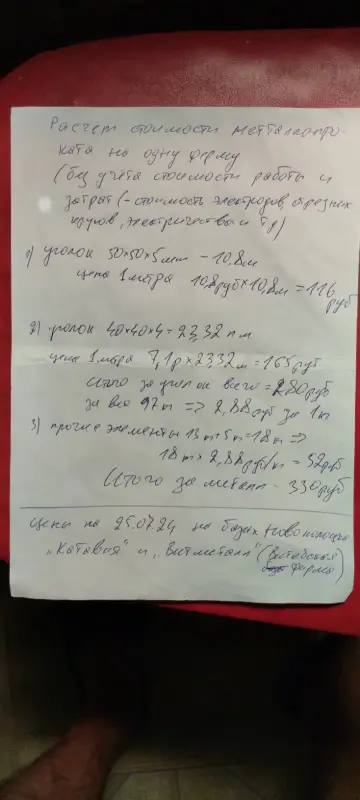 Расчет стоимости метталлопро-
ката на одну ферму
(без учета стоимости работы и
затрат (-стоимость электродов отрезных
кругов, электричества и тд)
1) уголок 50х50х5мм - 10,8м
цена 1 метра 10,8руб х 10,8м = 116
руб
2) уголок 40х40х4 = 23,32 пм
цена 1 метра 7,1р х 23,32м = 165руб
Итого за уголок всего = 280руб
за все 97кг => 2,88руб за 1кг
3) прочие элементы 13кг+5кг=18кг =>
18кг х 2,88руб/кг = 52руб
Итого за металл - 330руб
Цены на 25.07.24 на базах Новополоцка
"Катавия" и "Витметалл" (Витебская
фирма)